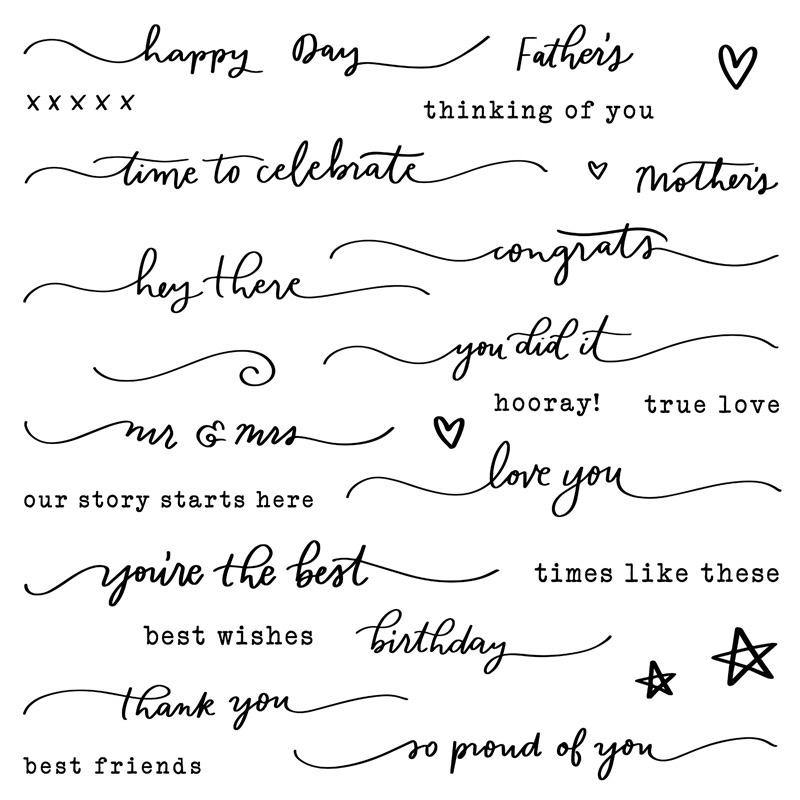 happy Day Father's
xxxxx
thinking of you
time to celebrate Mother's
congrats
hey there
you did it
hooray! true love
mr & mrs
love you
our story starts here
you're the best times like these
best wishes birthday
thank you
so proud of you
best friends